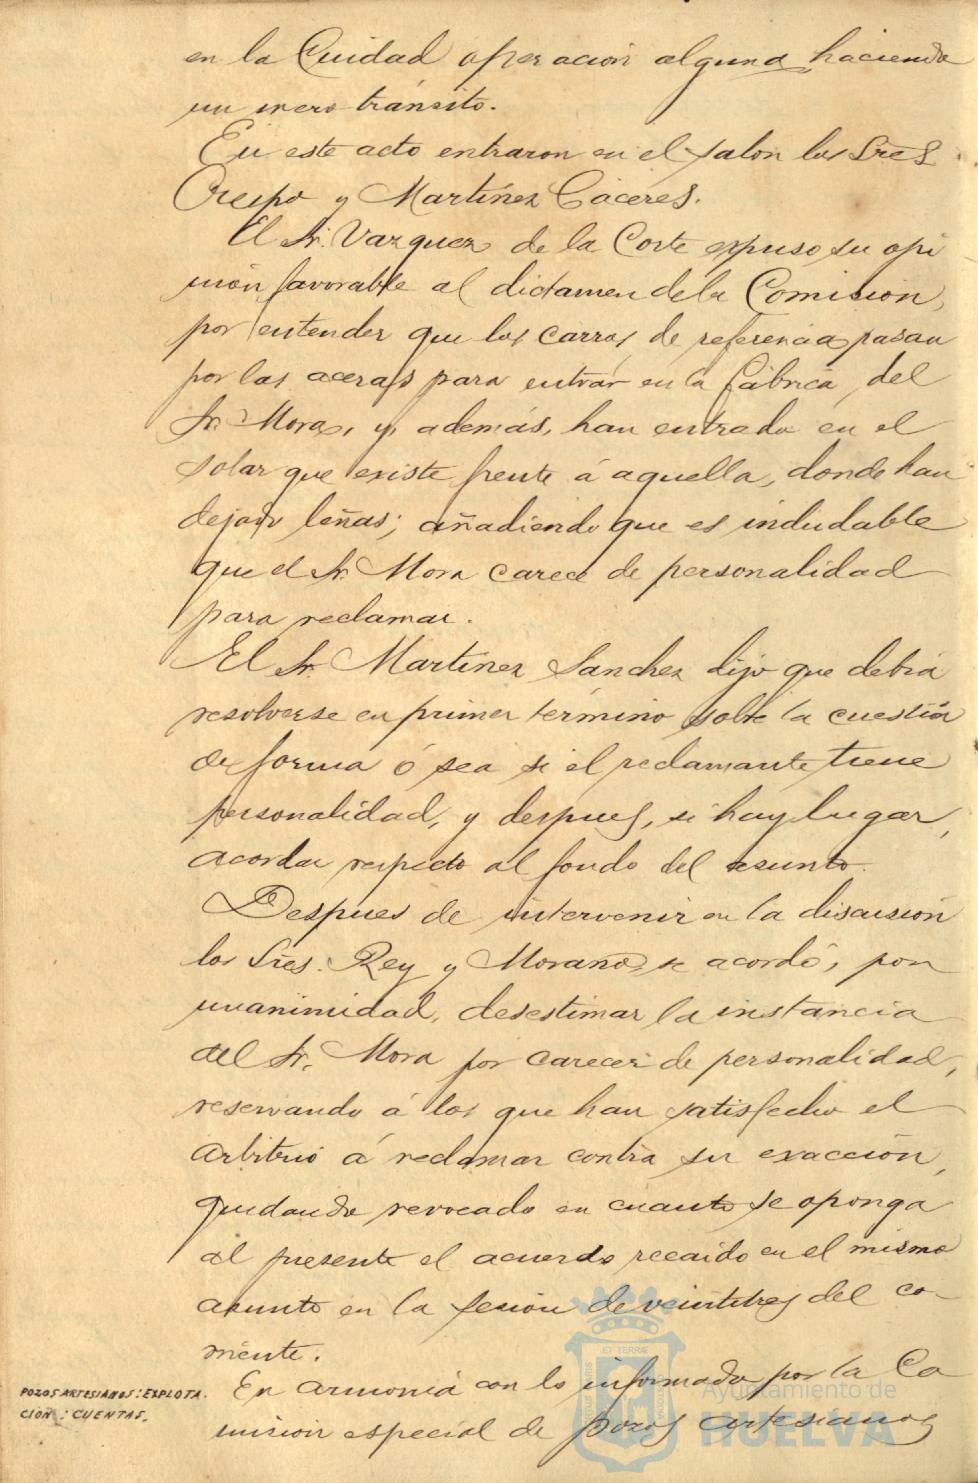 en la Ciudad operacion alguna, haciendo
un mero tránsito.
En este acto entraron en el salon los Sres
Crespo y Martínez Cáceres.
El Sr. Vazquez de la Corte expuso su opi
nión favorable al dictamen de la Comision,
por entender que los carros de referencia pasan
por las aceras para entrar en la fábrica del
Sr. Mora, y, además, han entrado en el
solar que existe frente á aquella, donde han
dejado leñas; añadiendo que es indudable
que el Sr. Mora carece de personalidad
para reclamar.
El Sr. Martínez Sanchez dijo que debia
resolverse en primer término sobre la cuestión
de forma ó sea si el reclamante tiene
personalidad, y despues, si hay lugar,
acordar respecto al fondo del asunto.
Despues de intervenir en la discusión
los Sres. Rey y Moraño, se acordó, por
unanimidad, desestimar la instancia
del Sr. Mora por carecer de personalidad,
reservando á los que han satisfecho el
arbitrio á reclamar contra su exacción,
quedando revocado en cuanto se oponga
al presente el acuerdo recaido en el mismo
asunto en la sesión de veintitres del co-
rriente.
POZOS ARTESIANOS: EXPLOTA.
CIÓN: CUENTAS.
En armonia con lo informado por la Co
mision especial de pozos artesianos
ET TERRÆ
Ayuntamiento de
HUELVA